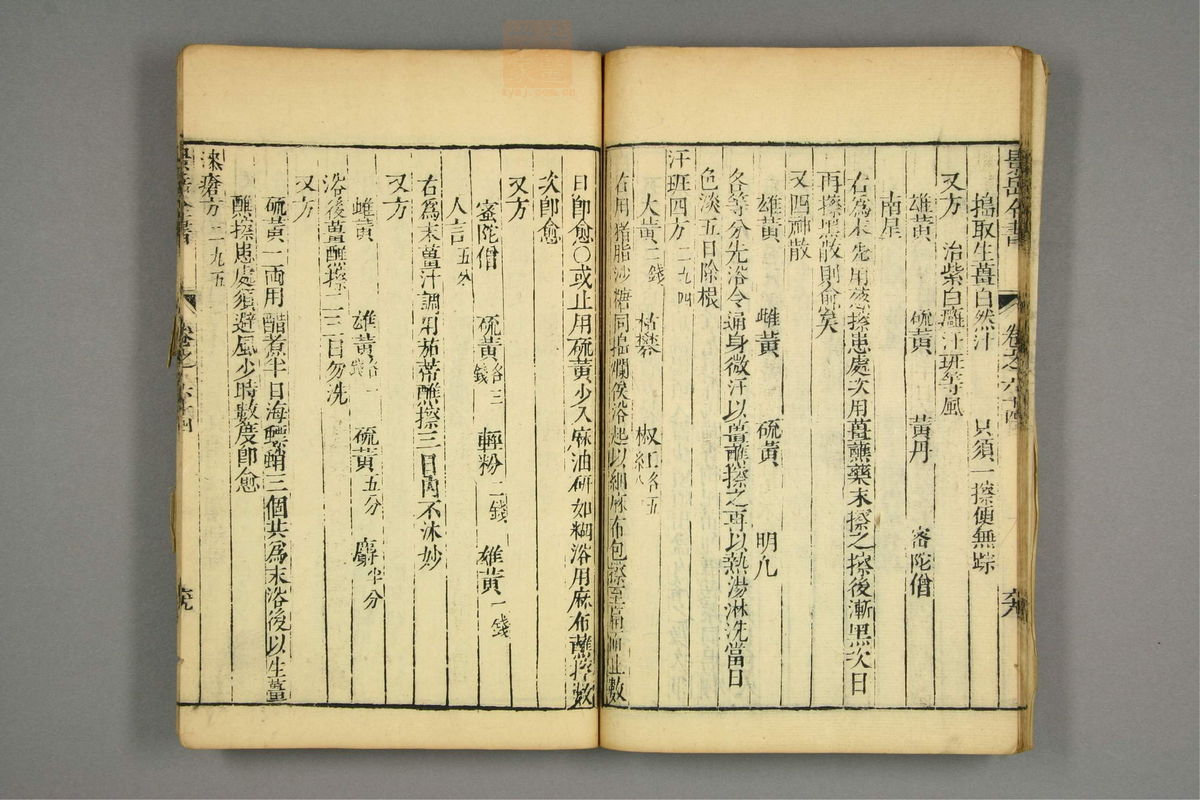 景岳全書 卷之六十四
搗取生薑自然汁 只須一擦便無踪
又方 治紫白癜汗班等風
雄黃 硫黃 黃丹 密陀僧
南星
右為末先用葱擦患處次用薑蘸藥末擦之擦後漸黑次日
再擦黑散則愈矣
又四神散
雄黃 雌黃 硫黃 明凡
各等分先浴令通身微汗以薑蘸擦之再以熱湯淋洗當日
色淡五日除根
汗班四方 二九四
大黃二錢 枯礬 椒紅各五分
右用猪脂沙糖同搗爛候浴起以細麻布包擦至 而止數
日即愈〇或止用硫黃少入麻油研如糊浴用麻布蘸擦數
次即愈
又方
密陀僧 硫黃各三錢 輕粉二錢 雄黃一錢
人言五分
右為末薑汁調用茄蒂蘸擦三日內不沐妙
又方
雌黃 雄黃各一錢 硫黃五分 麝半分
浴後薑蘸擦二三日勿洗
又方
硫黃一兩用醋煮半日海螵蛸三個共為末浴後以生薑
蘸擦患處須避風少時數度即愈
漆瘡方 二九五
景岳全書 卷之六十四